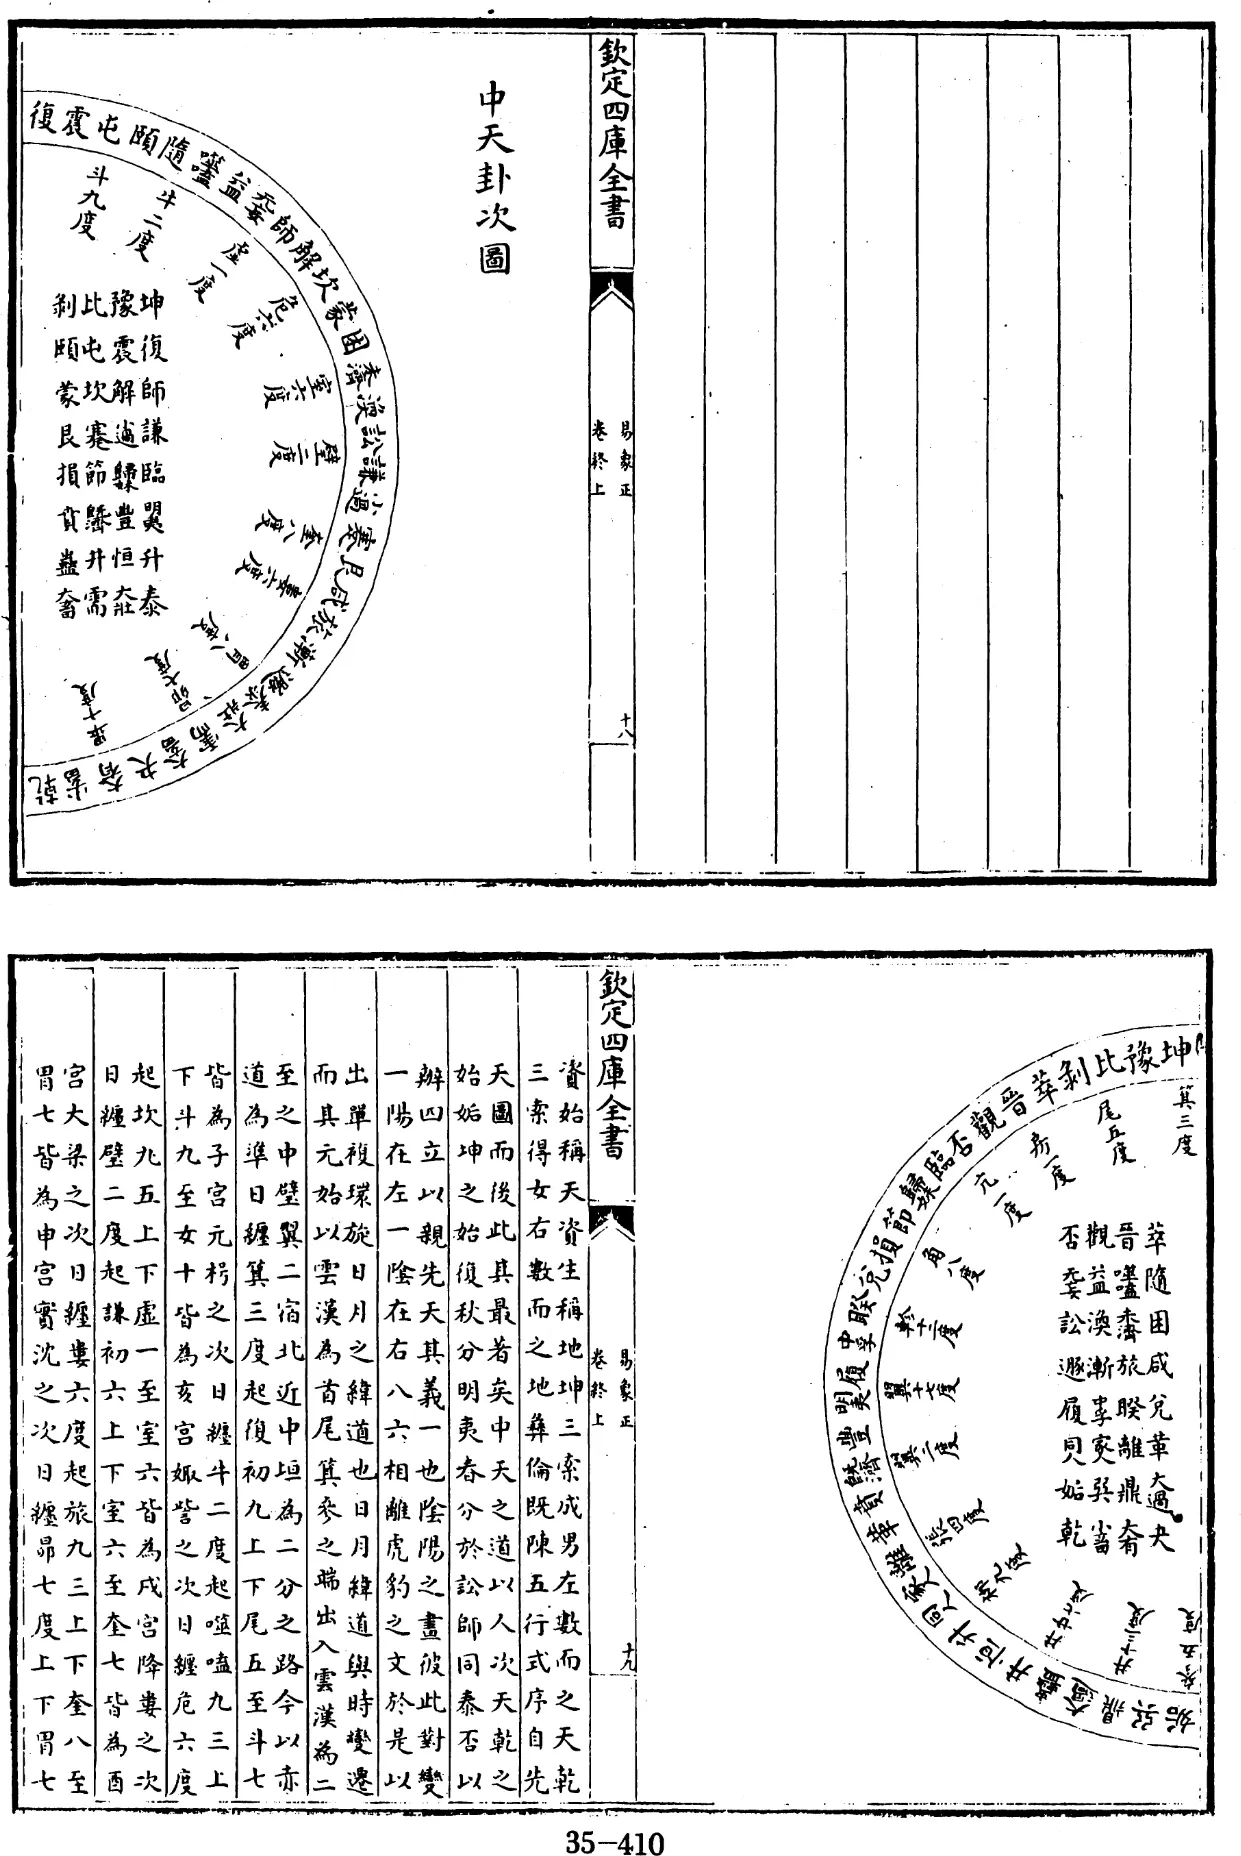 欽定四庫全書
易象正
卷終上
十八
中天卦次圖
復震屯頤隨噬嗑益无妄師解坎蒙困未濟渙訟謙小過蹇艮咸旅漸遯泰大壯需大畜夬大有小畜乾
斗九度
牛二度
虛一度
危六度
室六度
壁二度
奎八度
婁六度
胃八度
昴七度
畢十度
坤復師謙臨明夷升泰
豫震解小過歸妹豐恒大壯
比屯坎蹇節既濟井需
剝頤蒙艮損賁蠱大畜
坤豫比剝萃晉觀否臨歸妹節損兌睽中孚履明夷豐既濟賁革離家人同人升恒井蠱大過鼎巽姤
箕三度
尾五度
房一度
亢一度
角八度
軫十二度
翼十七度
翼二度
張四度
井廿六度
井十三度
參五度
萃隨困咸兌革大過夬
晉噬嗑未濟旅睽離鼎大有
觀益渙漸中孚家人巽小畜
否无妄訟遯履同人姤乾
欽定四庫全書
易象正
卷終上
十九
資始稱天資生稱地坤三索成男左數而之天乾
三索得女右數而之地彝倫既陳五行式序自先
天圖而後此其最著矣中天之道以人次天乾之
始姤坤之始復秋分明夷春分於訟師同泰否以
辦四立以親先天其義一也陰陽之畫彼此對變
一陽在左一陰在右八六相離虎豹之文於是以
出單複環旋日月之緯道也日月緯道與時變遷
而其元始以雲漢為首尾箕參之端出入雲漢為二
至之中壁翼二宿北近中垣為二分之路今以赤
道為準日纏箕三度起復初九上下尾五至斗七
皆為子宮元枵之次日纏牛二度起噬嗑九三上
下斗九至女十皆為亥宮娵訾之次日纏危六度
起坎九五上下虛一至室六皆為戌宮降婁之次
日纏壁二度起謙初六上下室六至奎七皆為酉
宮大梁之次日纏婁六度起旅九三上下奎八至
胃七皆為申宮實沈之次日纏昴七度上下胃七
35-410